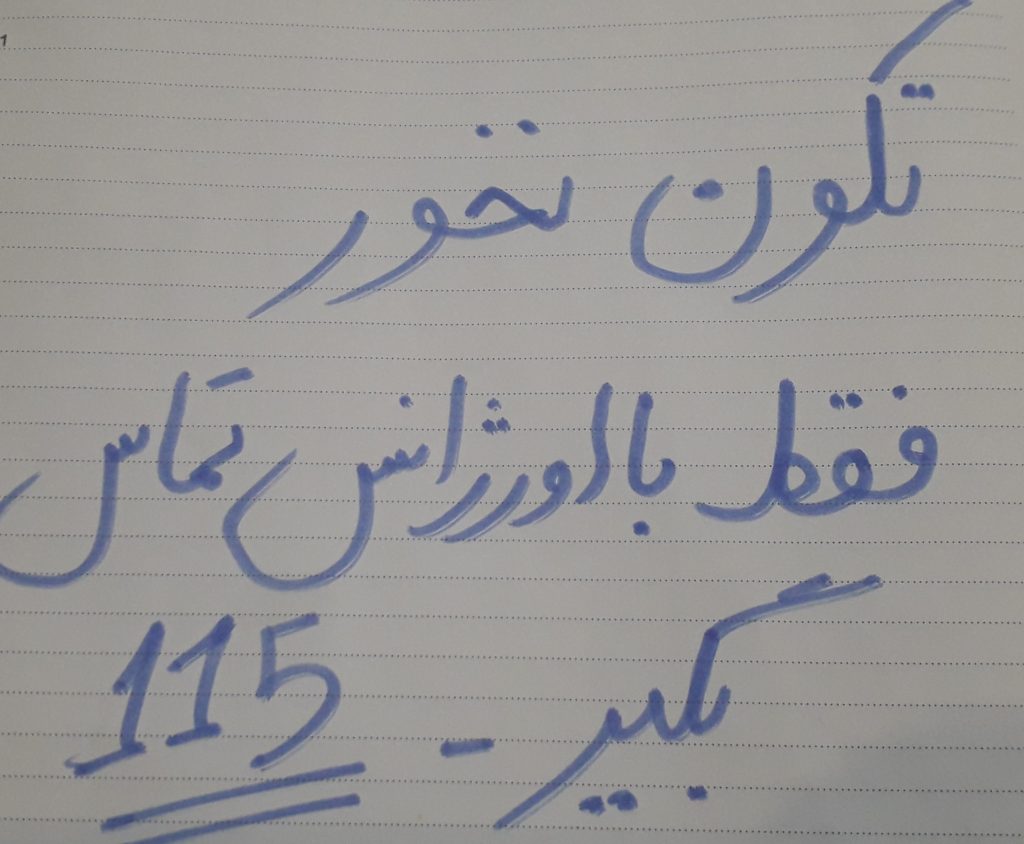 تکون نخور
فقط با اورژانس تماس
بگیر - 115